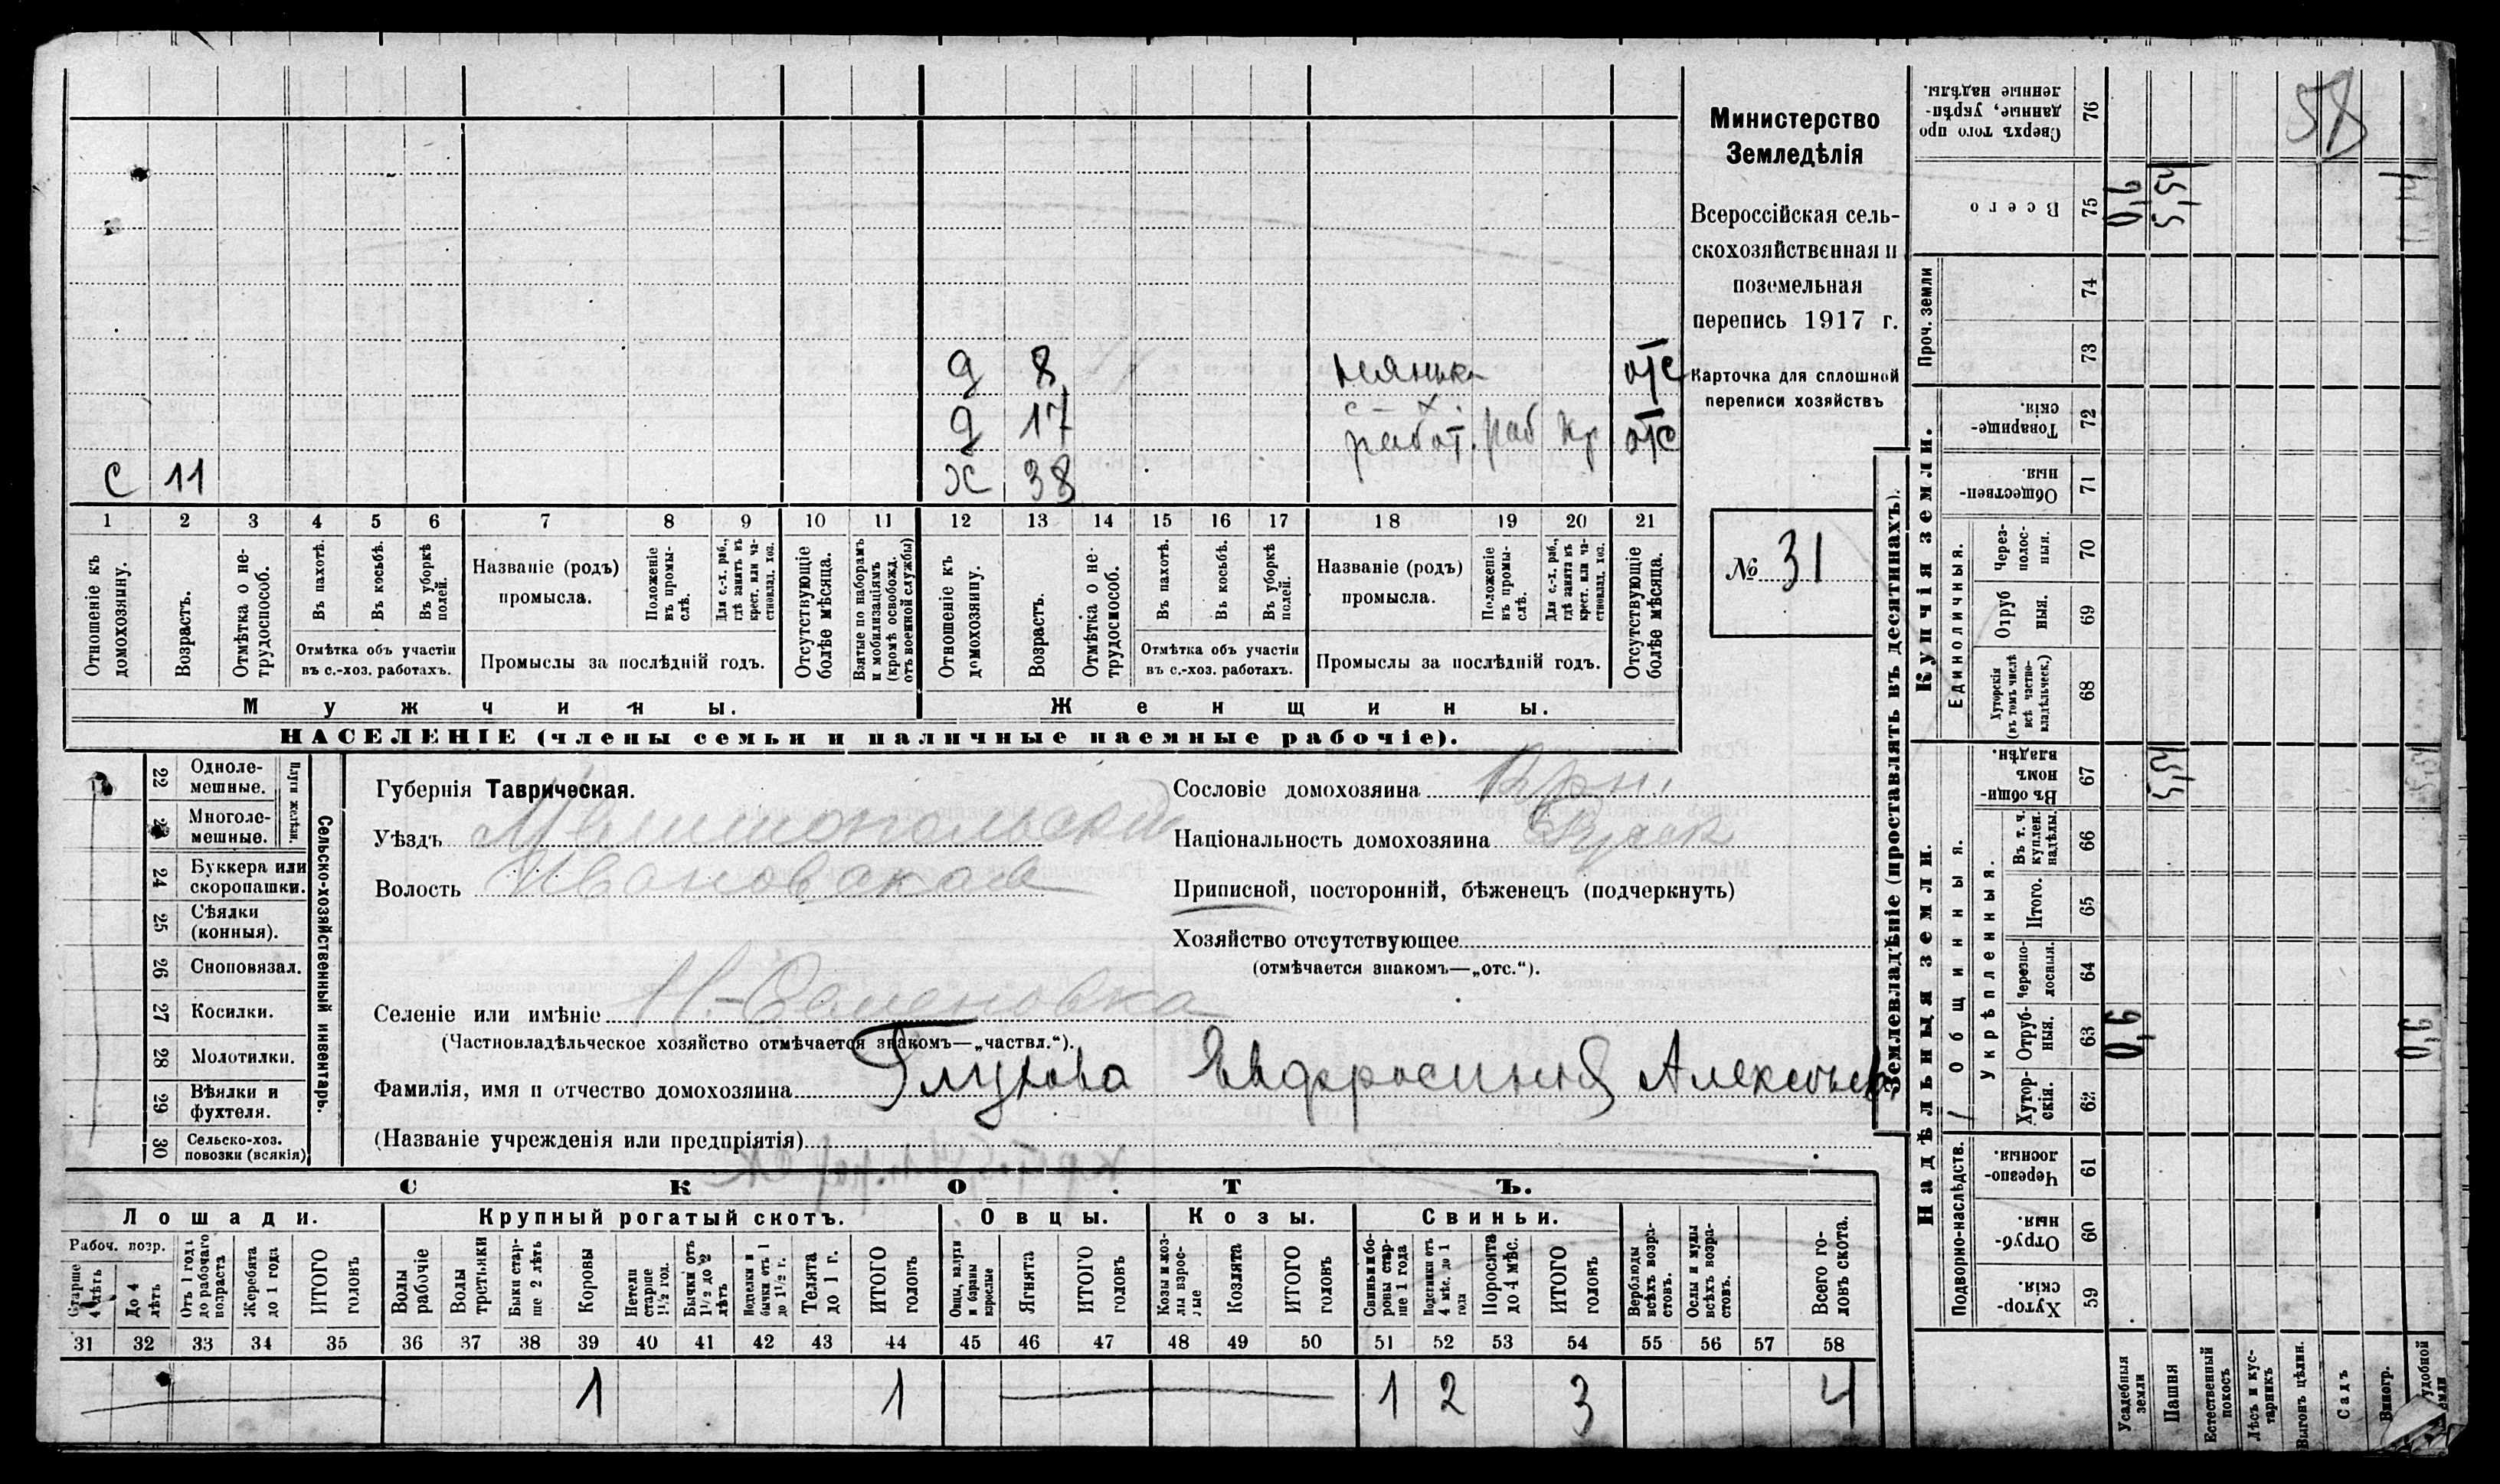 Министерство
Земледѣлія
Всероссійская сель-
скохозяйственная и
поземельная
перепись 1917 г.
Карточка для сплошной
переписи хозяйствъ
№ 31
58
д 8 нянька отс
д 17 работ. раб кр отс
с 11 х 38
1 2 3 4 5 6 7 8 9 10 11 12 13 14 15 16 17 18 19 20 21
Отношеніе къ домохозяину.
Возрастъ.
Отмѣтка о не-трудоспособ.
Въ пахотѣ.
Въ косьбѣ.
Въ уборкѣ полей.
Отмѣтка объ участіи
въ с.-хоз. работахъ.
Названіе (родъ)
промысла.
Положеніе въ промы-слѣ.
Для с.-х. раб., гдѣ занятъ въ крест. или ча-стновлад. хоз.
Промыслы за послѣдній годъ.
Отсутствующіе болѣе мѣсяца.
Взятые по наборамъ и мобилизаціямъ (кромѣ освобожд. отъ военной службы)
Отношеніе къ домохозяину.
Возрастъ.
Отмѣтка о не-трудоспособ.
Въ пахотѣ.
Въ косьбѣ.
Въ уборкѣ полей.
Отмѣтка объ участіи
въ с.-хоз. работахъ.
Названіе (родъ)
промысла.
Положеніе въ промы-слѣ.
Для с.-х. раб., гдѣ занята въ крест. или ча-стновлад. хоз.
Промыслы за послѣдній годъ.
Отсутствующіе болѣе мѣсяца.
Мужчины. Женщины.
НАСЕЛЕНІЕ (члены семьи и наличные наемные рабочіе).
Сельско-хозяйственный инвентарь.
Плуги желѣзн.
22 Одноле-мешные.
23 Многоле-мешные.
24 Буккера или скоропашки.
25 Сѣялки (конныя).
26 Сноповязал.
27 Косилки.
28 Молотилки.
29 Вѣялки и фухтеля.
30 Сельско-хоз. повозки (всякія)
Губернія Таврическая.
Уѣздъ Мелитопольскій
Волость Ивановская
Сословіе домохозяина Крн.
Національность домохозяина
Приписной, посторонній, бѣженецъ (подчеркнуть)
Хозяйство отсутствующее
(отмѣчается знакомъ—„отс.“).
Селеніе или имѣніе Н-Семеновка
(Частновладѣльческое хозяйство отмѣчается знакомъ—„частвл.“).
Фамилія, имя и отчество домохозяина Глухова Евфросинія Алексѣев.
(Названіе учрежденія или предпріятія)
СКОТЪ.
Лошади. Крупный рогатый скотъ. Овцы. Козы. Свиньи.
Рабоч. возр.
Старше 4 лѣтъ
До 4 лѣтъ
Отъ 1 года до рабочаго возраста
Жеребята до 1 года
ИТОГО головъ
Волы рабочіе
Волы третьяки
Быки стар-ше 2 лѣтъ
Коровы
Нетели старше 1½ год.
Бычки отъ 1½ до 2 лѣтъ
Подтелки и бычки отъ 1 до 1½ г.
Телята до 1 г.
ИТОГО головъ
Овцы, валухи и бараны взрослые
Ягнята
ИТОГО головъ
Козы и коз-лы взрос-лые
Козлята
ИТОГО головъ
Свиньи и бо-ровы стар-ше 1 года
Подсвинки отъ 4 мѣс. до 1 года
Поросята до 4 мѣс.
ИТОГО головъ
Верблюды всѣхъ возра-стовъ.
Ослы и мулы всѣхъ возра-стовъ.
Всего го-ловъ скота.
31 32 33 34 35 36 37 38 39 40 41 42 43 44 45 46 47 48 49 50 51 52 53 54 55 56 57 58
1 1 1 2 3 4
Землевладѣніе (проставлять въ десятинахъ).
Надѣльныя земли. Купчія земли. Проч. земли
Подворно-наслѣдств.
Общинныя.
Укрѣпленныя.
Единоличныя.
Хутор-скія. 59
Отруб-ныя. 60
Черезпо-лосныя. 61
Хутор-скія. 62
Отруб-ныя. 63
Черезпо-лосныя. 64
Итого. 65
Въ т. ч. куплен. надѣлы. 66
Въ общи-номъ владѣн. 67
Хуторскія (въ томъ числѣ всѣ частно-владѣльческ.) 68
Отруб ныя. 69
Через-полос-ныя. 70
Обществен-ныя. 71
Товарище-скія. 72
73
74
Всего 75
Сверхъ того про данные, укрѣп-ленные надѣлы. 76
Усадебныя земли 0,6 0,6
Пашня 5,54 5,54
Естественный покосъ
Лѣсъ и кус-тарникъ
Выгонъ цѣлин.
Садъ
Виногр.
удобной земли 0,6